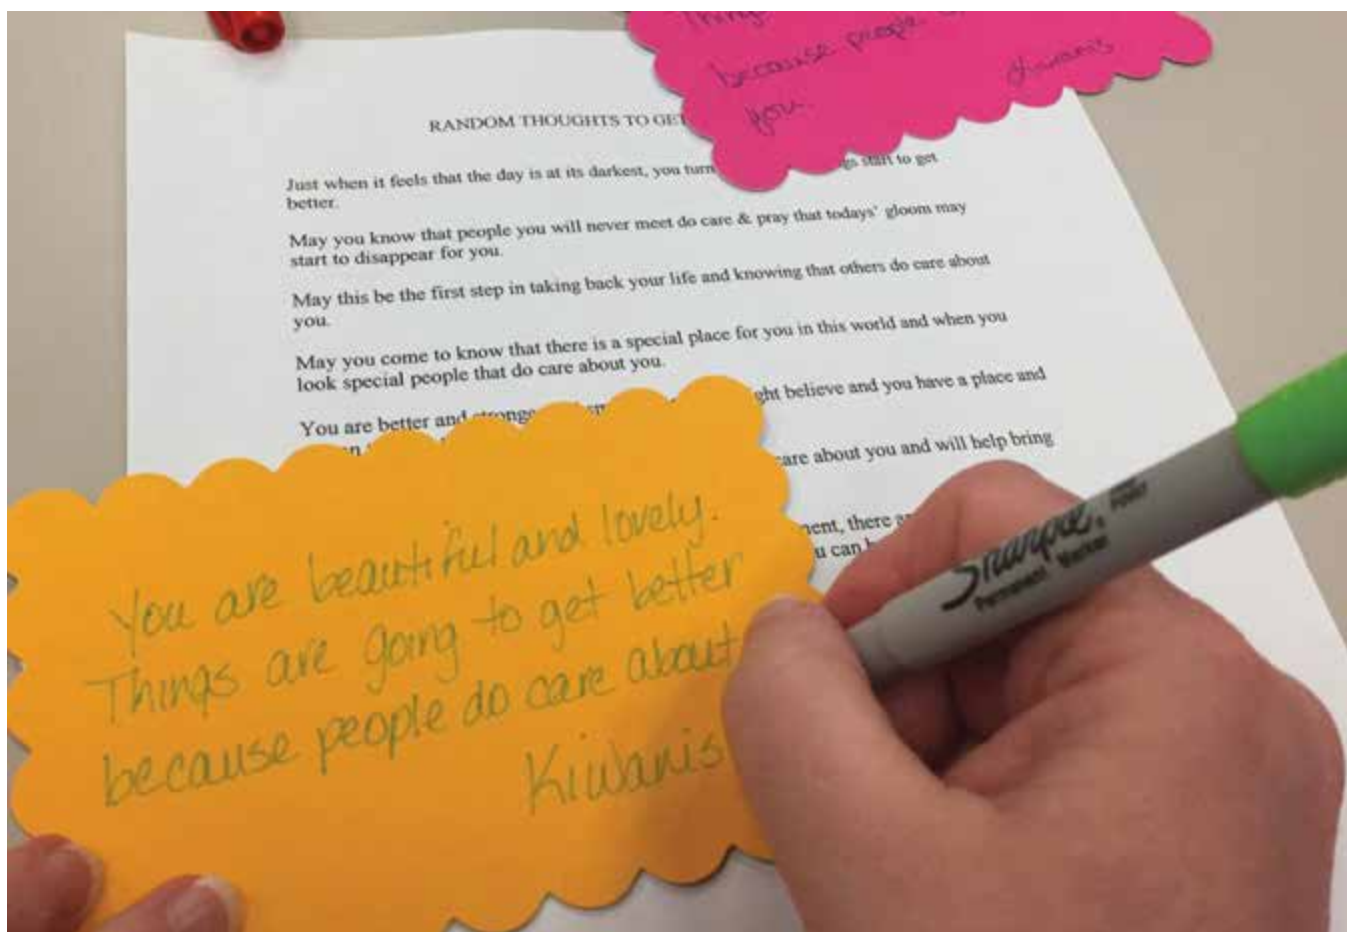 Things
because people
you.
Kiwanis
RANDOM THOUGHTS TO GET
Just when it feels that the day is at its darkest, you turn
start to get
better.
May you know that people you will never meet do care & pray that todays' gloom may
start to disappear for you.
May this be the first step in taking back your life and knowing that others do care about
you.
May you come to know that there is a special place for you in this world and when you
look special people that do care about you.
You are better and believe and you have a place and
care about you and will help bring
there
can
You are beautiful and lovely.
Things are going to get better
because people do care about
Kiwanis
Sharpie
Permanent Marker